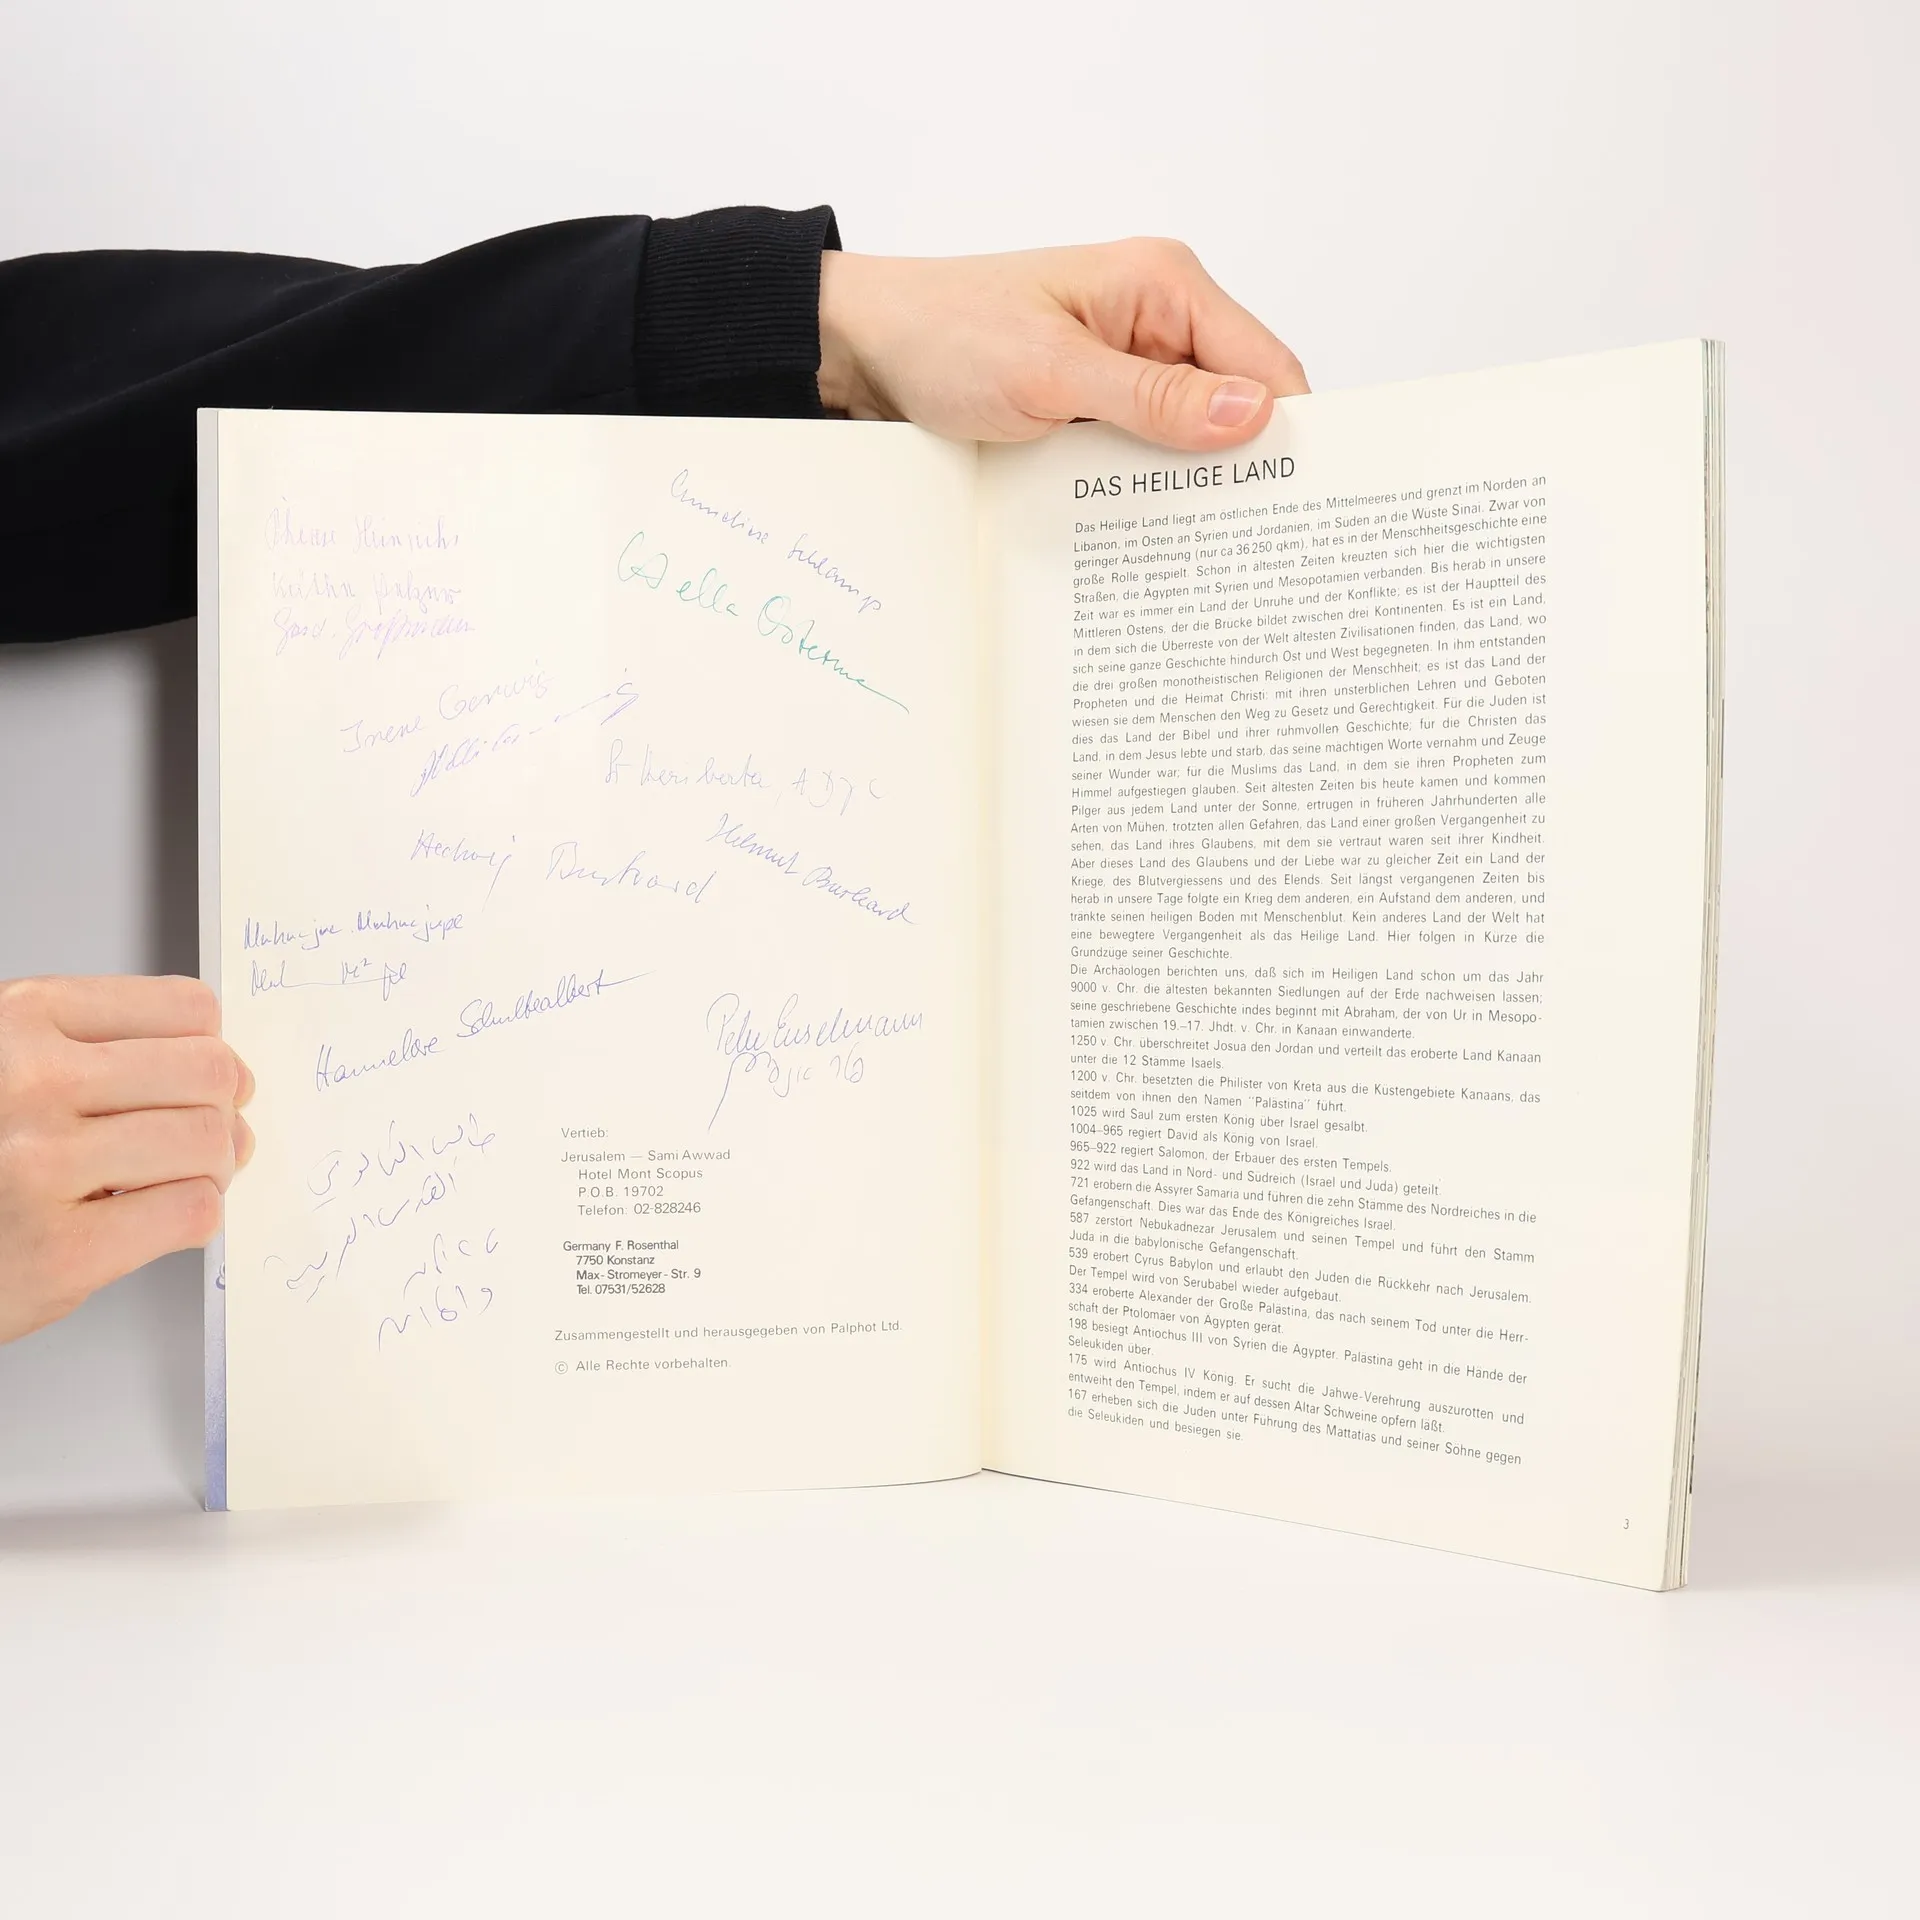 Annelise Schlamp
Irene Gerwig
Hedwig Burkard
Helmut Burkard
Hannelore Schultealbert
Vertieb:
Jerusalem — Sami Awwad
Hotel Mont Scopus
P.O.B. 19702
Telefon: 02-828246
Germany F. Rosenthal
7750 Konstanz
Max-Stromeyer-Str. 9
Tel. 07531/52628
Zusammengestellt und herausgegeben von Palphot Ltd.
© Alle Rechte vorbehalten.
DAS HEILIGE LAND
Das Heilige Land liegt am östlichen Ende des Mittelmeeres und grenzt im Norden an
Libanon, im Osten an Syrien und Jordanien, im Süden an die Wüste Sinai. Zwar von
geringer Ausdehnung (nur ca 36 250 qkm), hat es in der Menschheitsgeschichte eine
große Rolle gespielt. Schon in ältesten Zeiten kreuzten sich hier die wichtigsten
Straßen, die Ägypten mit Syrien und Mesopotamien verbanden. Bis herab in unsere
Zeit war es immer ein Land der Unruhe und der Konflikte; es ist der Hauptteil des
Mittleren Ostens, der die Brücke bildet zwischen drei Kontinenten. Es ist ein Land,
in dem sich die Überreste von der Welt ältesten Zivilisationen finden, das Land, wo
sich seine ganze Geschichte hindurch Ost und West begegneten. In ihm entstanden
die drei großen monotheistischen Religionen der Menschheit; es ist das Land der
Propheten und die Heimat Christi: mit ihren unsterblichen Lehren und Geboten
wiesen sie dem Menschen den Weg zu Gesetz und Gerechtigkeit. Für die Juden ist
dies das Land der Bibel und ihrer ruhmvollen Geschichte; für die Christen das
Land, in dem Jesus lebte und starb, das seine mächtigen Worte vernahm und Zeuge
seiner Wunder war; für die Muslims das Land, in dem sie ihren Propheten zum
Himmel aufgestiegen glauben. Seit ältesten Zeiten bis heute kamen und kommen
Pilger aus jedem Land unter der Sonne, ertrugen in früheren Jahrhunderten alle
Arten von Mühen, trotzten allen Gefahren, das Land einer großen Vergangenheit zu
sehen, das Land ihres Glaubens, mit dem sie vertraut waren seit ihrer Kindheit.
Aber dieses Land des Glaubens und der Liebe war zu gleicher Zeit ein Land der
Kriege, des Blutvergiessens und des Elends. Seit längst vergangenen Zeiten bis
herab in unsere Tage folgte ein Krieg dem anderen, ein Aufstand dem anderen, und
tränkte seinen heiligen Boden mit Menschenblut. Kein anderes Land der Welt hat
eine bewegtere Vergangenheit als das Heilige Land. Hier folgen in Kürze die
Grundzüge seiner Geschichte.
Die Archäologen berichten uns, daß sich im Heiligen Land schon um das Jahr
9000 v. Chr. die ältesten bekannten Siedlungen auf der Erde nachweisen lassen;
seine geschriebene Geschichte indes beginnt mit Abraham, der von Ur in Mesopo-
tamien zwischen 19.–17. Jhdt. v. Chr. in Kanaan einwanderte.
1250 v. Chr. überschreitet Josua den Jordan und verteilt das eroberte Land Kanaan
unter die 12 Stämme Isaels.
1200 v. Chr. besetzten die Philister von Kreta aus die Küstengebiete Kanaans, das
seitdem von ihnen den Namen "Palästina" führt.
1025 wird Saul zum ersten König über Israel gesalbt.
1004–965 regiert David als König von Israel.
965–922 regiert Salomon, der Erbauer des ersten Tempels.
922 wird das Land in Nord- und Südreich (Israel und Juda) geteilt.
721 erobern die Assyrer Samaria und führen die zehn Stämme des Nordreiches in die
Gefangenschaft. Dies war das Ende des Königreiches Israel.
587 zerstört Nebukadnezar Jerusalem und seinen Tempel und führt den Stamm
Juda in die babylonische Gefangenschaft.
539 erobert Cyrus Babylon und erlaubt den Juden die Rückkehr nach Jerusalem.
Der Tempel wird von Serubabel wieder aufgebaut.
334 eroberte Alexander der Große Palästina, das nach seinem Tod unter die Herr-
schaft der Ptolomäer von Ägypten gerät.
198 besiegt Antiochus III von Syrien die Ägypter. Palästina geht in die Hände der
Seleukiden über.
175 wird Antiochus IV König. Er sucht die Jahwe-Verehrung auszurotten und
entweiht den Tempel, indem er auf dessen Altar Schweine opfern läßt.
167 erheben sich die Juden unter Führung des Mattatias und seiner Söhne gegen
die Seleukiden und besiegen sie.
3